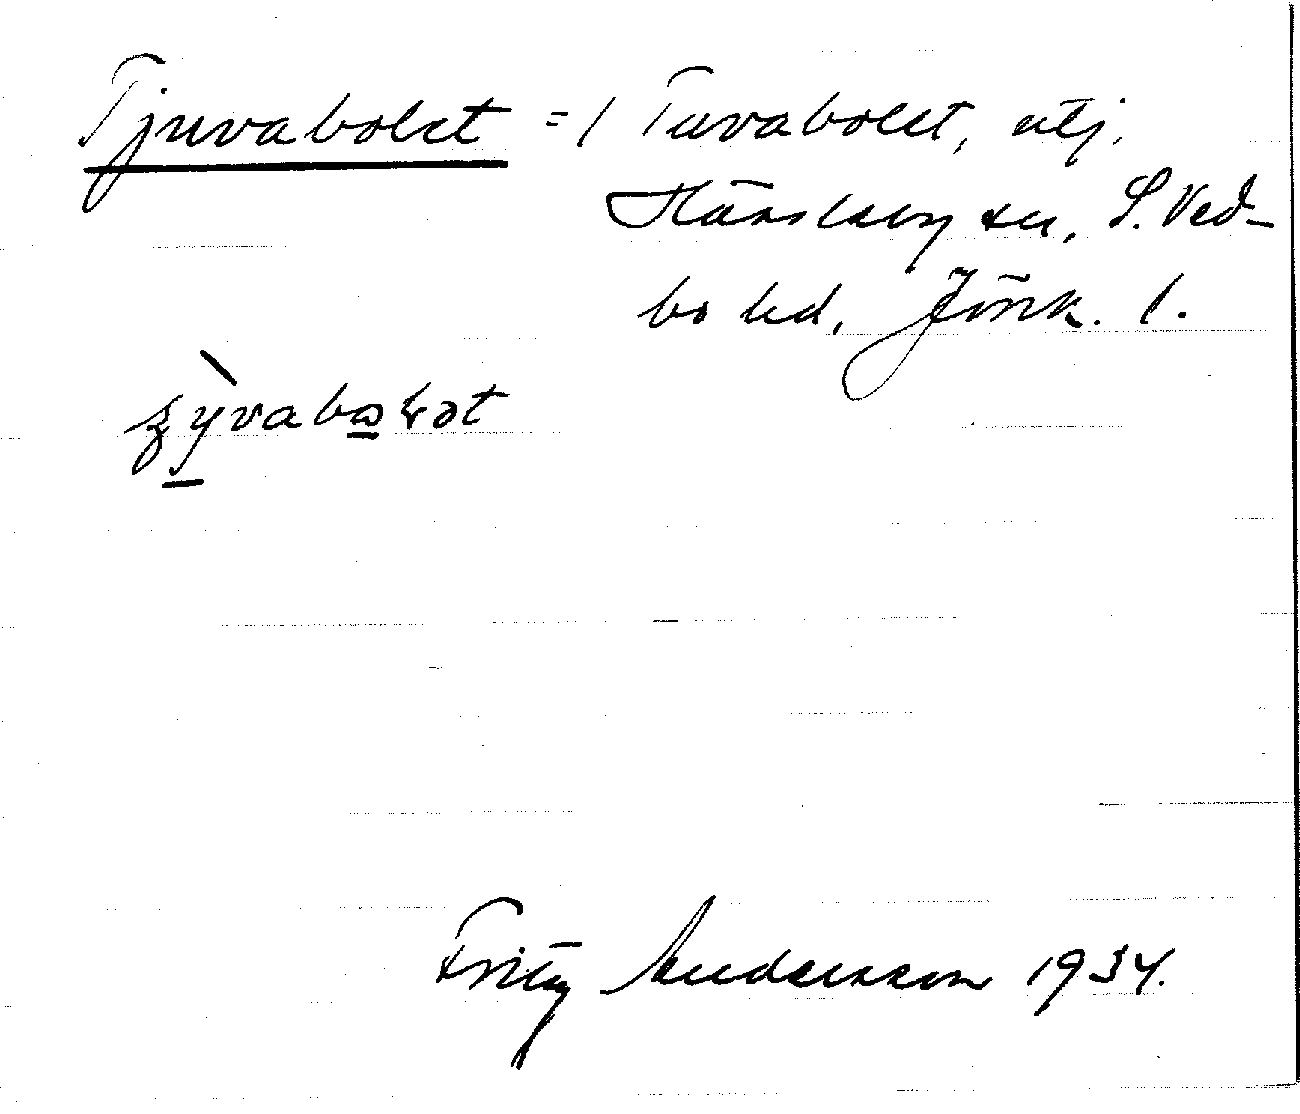 Tjuvabolet = / Tuvabolet, utj.
Hässleby sn, S. Ved-
bo hd, Jönk. l.
Fritz Andersson 1934.